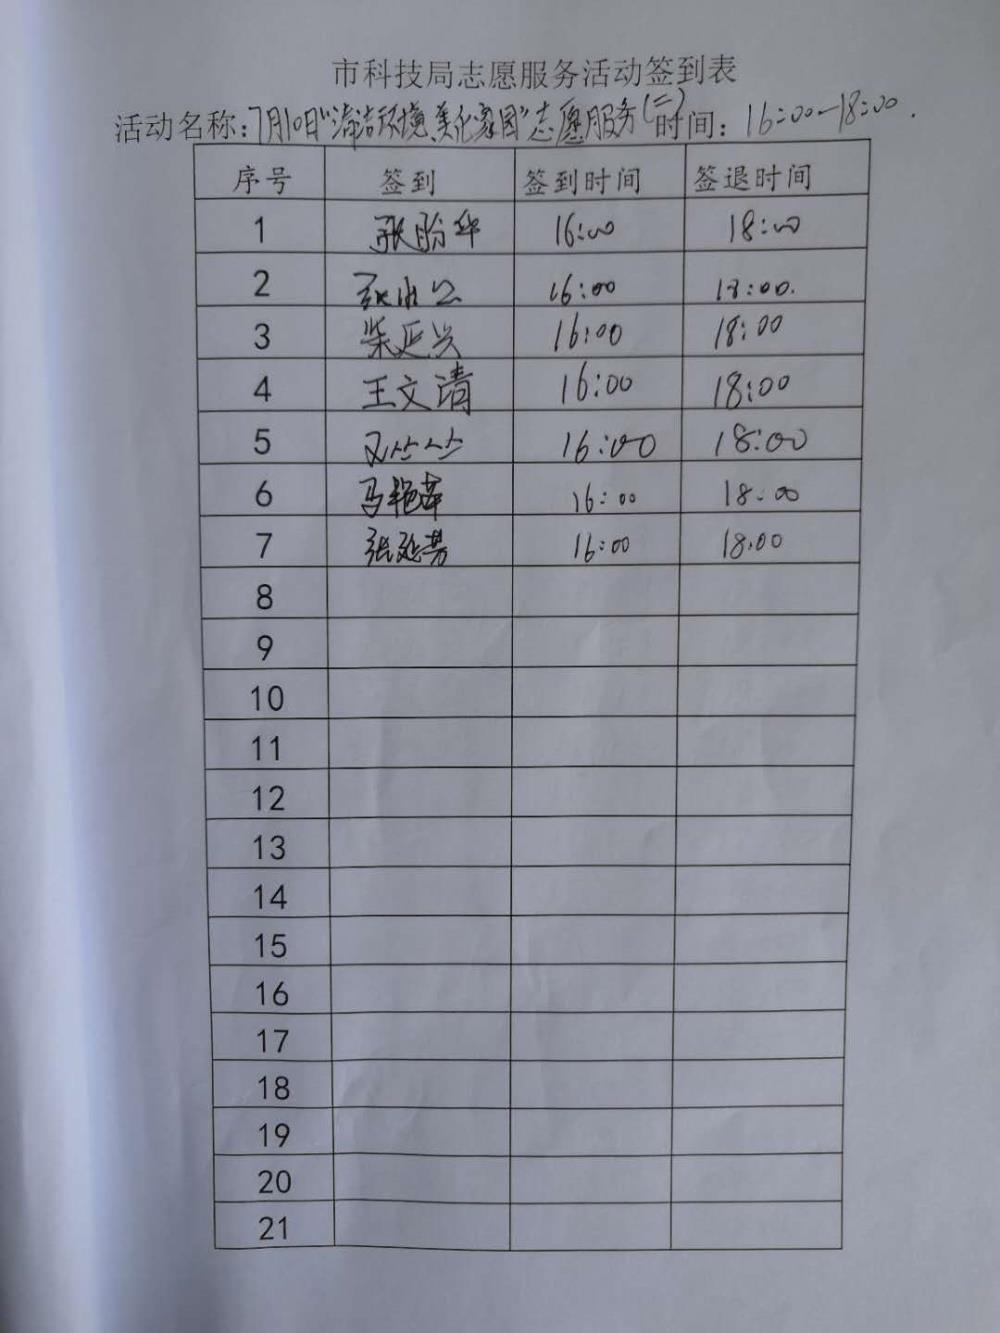 市科技局志愿服务活动签到表
活动名称:7月10日"清洁环境,美化家园"志愿服务(二)时间: 16:00-18:00.
序号 签到 签到时间 签退时间
1 张盼华 16:00 18:00
2 16:00 18:00.
3 柴延兴 16:00 18:00
4 王文清 16:00 18:00
5 16:00 18:00
6 马艳苹 16:00 18:00
7 张延芳 16:00 18:00
8
9
10
11
12
13
14
15
16
17
18
19
20
21